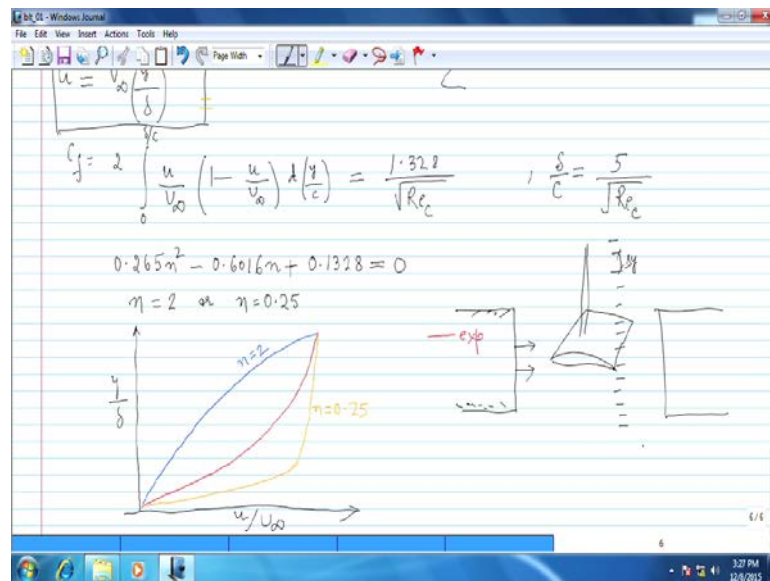 blt_01 - Windows Journal
File Edit View Insert Actions Tools Help
Page Width
u = U∞ (y/δ)
Cf = 2 ∫₀^(δ/c) u/U∞ (1 - u/U∞) d(y/c) = 1.328/√Re_c , δ/c = 5/√Re_c
0.265n² - 0.6016n + 0.1328 = 0
n = 2 or n = 0.25
exp
n=2
y/δ
n=0.25
u/U∞
6/6
6
3:27 PM
12/8/2015